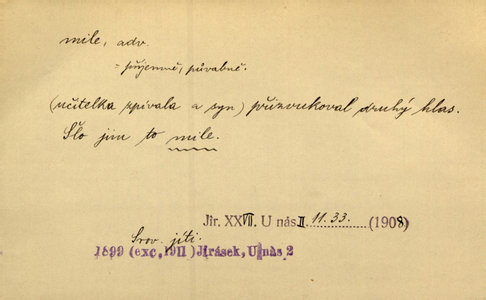 mile, adv.
= příjemně, půvabně.
(učitelka zpívala a syn) přizvukoval druhý hlas.
Šlo jim to mile.
Jir. XXVII. U nás II 11. 33. (1908)
Srov. jíti.
1899 (exc. 1911) Jirásek, U nás 2